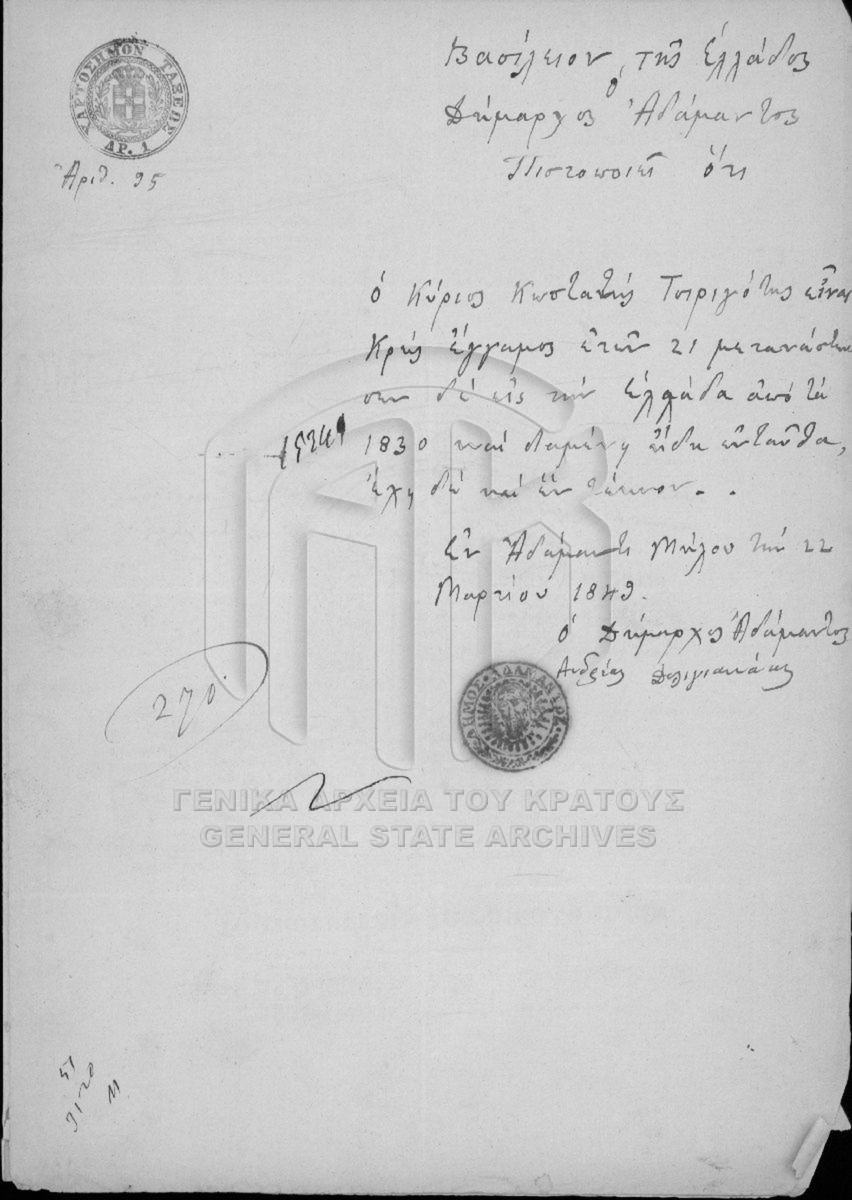 ΧΑΡΤΟΣΗΜΟΝ ΤΑΞΕΩΣ
ΔΡ. 1
Ἀριθ. 95
Βασίλειον τῆς Ἑλλάδος
ὁ
Δήμαρχος Ἀδάμαντος
Πιστοποιεῖ ὅτι
ὁ Κύριος Κωσταντῆς Τσιριγότης εἶναι
Κρής ἔγγαμος ἐτῶν 21 μετανάστευ
σεν δέ εἰς τήν Ἑλλάδα ἀπό τά
1830 καί διαμένη εἴδη ἐνταῦθα,
ἔχη δέ καί ἕν τέκνον. .
Ἐν Ἀδάμαντι Μήλου τήν 22
Μαρτίου 1849.
ὁ Δήμαρχος Ἀδάμαντος
Ἀνδρέας
ΔΗΜΟΣ
270.
ΓΕΝΙΚΑ ΑΡΧΕΙΑ ΤΟΥ ΚΡΑΤΟΥΣ
GENERAL STATE ARCHIVES